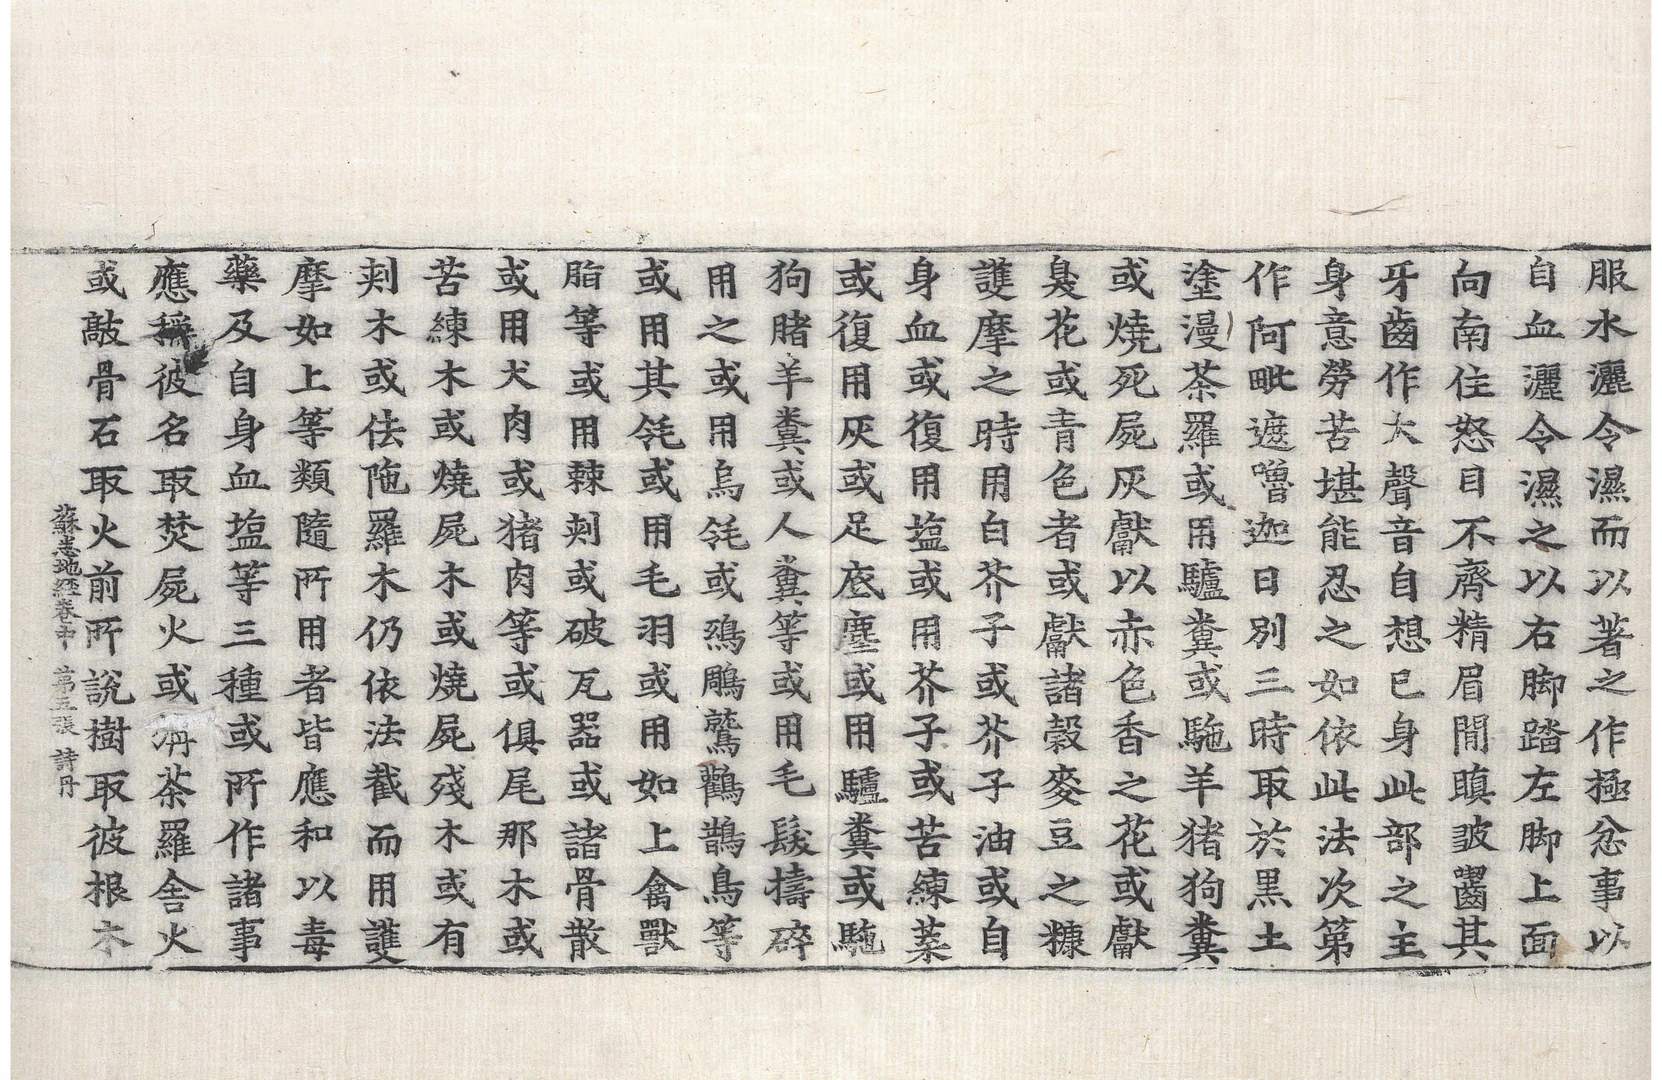 服水灑令濕而以著之作極忿事以
自血灑令濕之以右脚踏左脚上面
向南住怒目不齊精眉間瞋皷齧其
牙齒作大聲音自想已身此部之主
身意勞苦堪能忍之如依此法次第
作阿毗遮嚕迦日別三時取於黒土
塗漫荼羅或用驢糞或駞羊猪狗糞
或燒死屍灰獻以赤色香之花或獻
臭花或青色者或獻諸穀麥豆之糠
護摩之時用白芥子或芥子油或自
身血或復用塩或用芥子或苦練葉
或復用灰或足底塵或用驢糞或駞
狗賭羊糞或人糞等或用毛髮擣碎
用之或用烏毦或鵄鵰鷲鸛鵲鳥等
或用其毦或用毛羽或用如上禽獸
脂等或用棘刾或破瓦器或諸骨散
或用犬肉或猪肉等或俱尾那木或
苦練木或燒屍木或燒屍殘木或有
刾木或佉陁羅木仍依法截而用護
摩如上等類隨所用者皆應和以毒
藥及自身血塩等三種或所作諸事
應稱彼名取焚屍火或旃荼羅舍火
或敲骨石取火前所說樹取彼根木
蘇悉地經卷中 第五張 詩丹